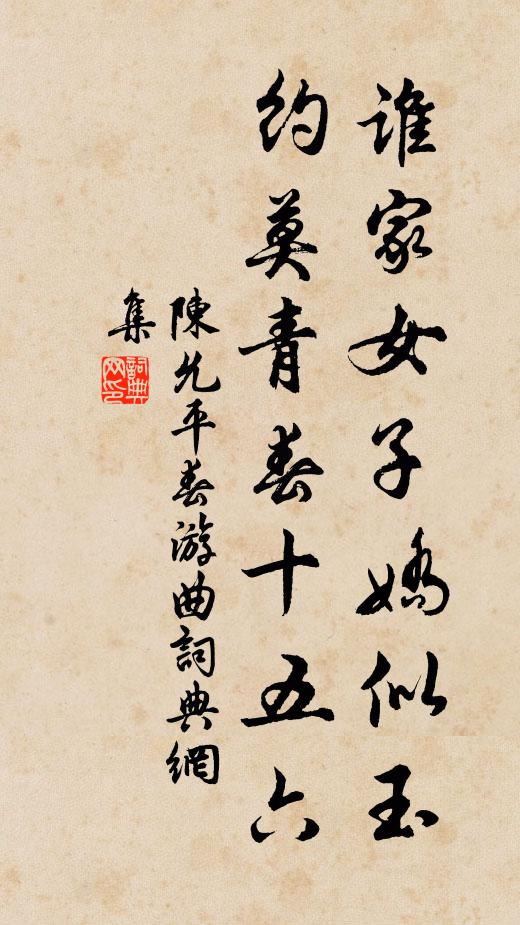 誰家女子嬌似玉
約莫青春十五六
陳允平春游曲詞典網
集
詞典
网印